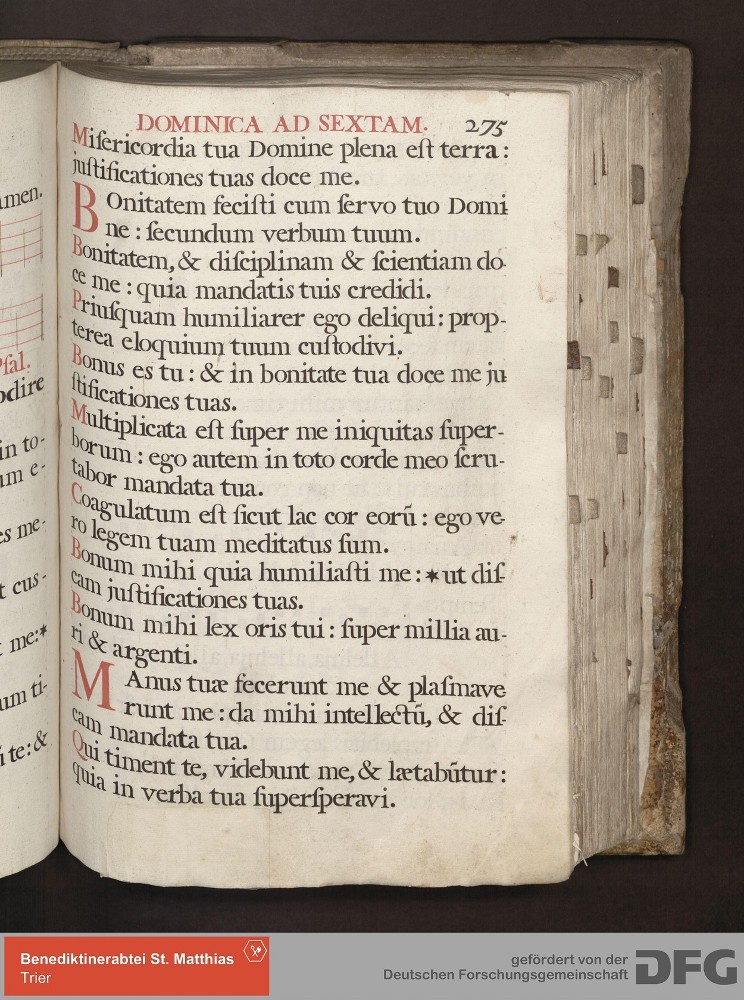 amen.
Psal.
odire
in to-
um e-
es me-
t cus-
me:*
um ti-
te: &
DOMINICA AD SEXTAM. 275
Misericordia tua Domine plena est terra:
justificationes tuas doce me.
BOnitatem fecisti cum servo tuo Domi
ne: secundum verbum tuum.
Bonitatem, & disciplinam & scientiam do-
ce me: quia mandatis tuis credidi.
Priusquam humiliarer ego deliqui: prop-
terea eloquium tuum custodivi.
Bonus es tu: & in bonitate tua doce me ju
stificationes tuas.
Multiplicata est super me iniquitas super-
borum: ego autem in toto corde meo scru-
tabor mandata tua.
Coagulatum est sicut lac cor eorũ: ego ve-
ro legem tuam meditatus sum.
Bonum mihi quia humiliasti me: * ut dis-
cam justificationes tuas.
Bonum mihi lex oris tui: super millia au-
ri & argenti.
MAnus tuæ fecerunt me & plasmave
runt me: da mihi intellectũ, & dis-
cam mandata tua.
Qui timent te, videbunt me, & lætabũtur:
quia in verba tua supersperavi.
Benediktinerabtei St. Matthias
Trier
gefördert von der
Deutschen Forschungsgemeinschaft
DFG